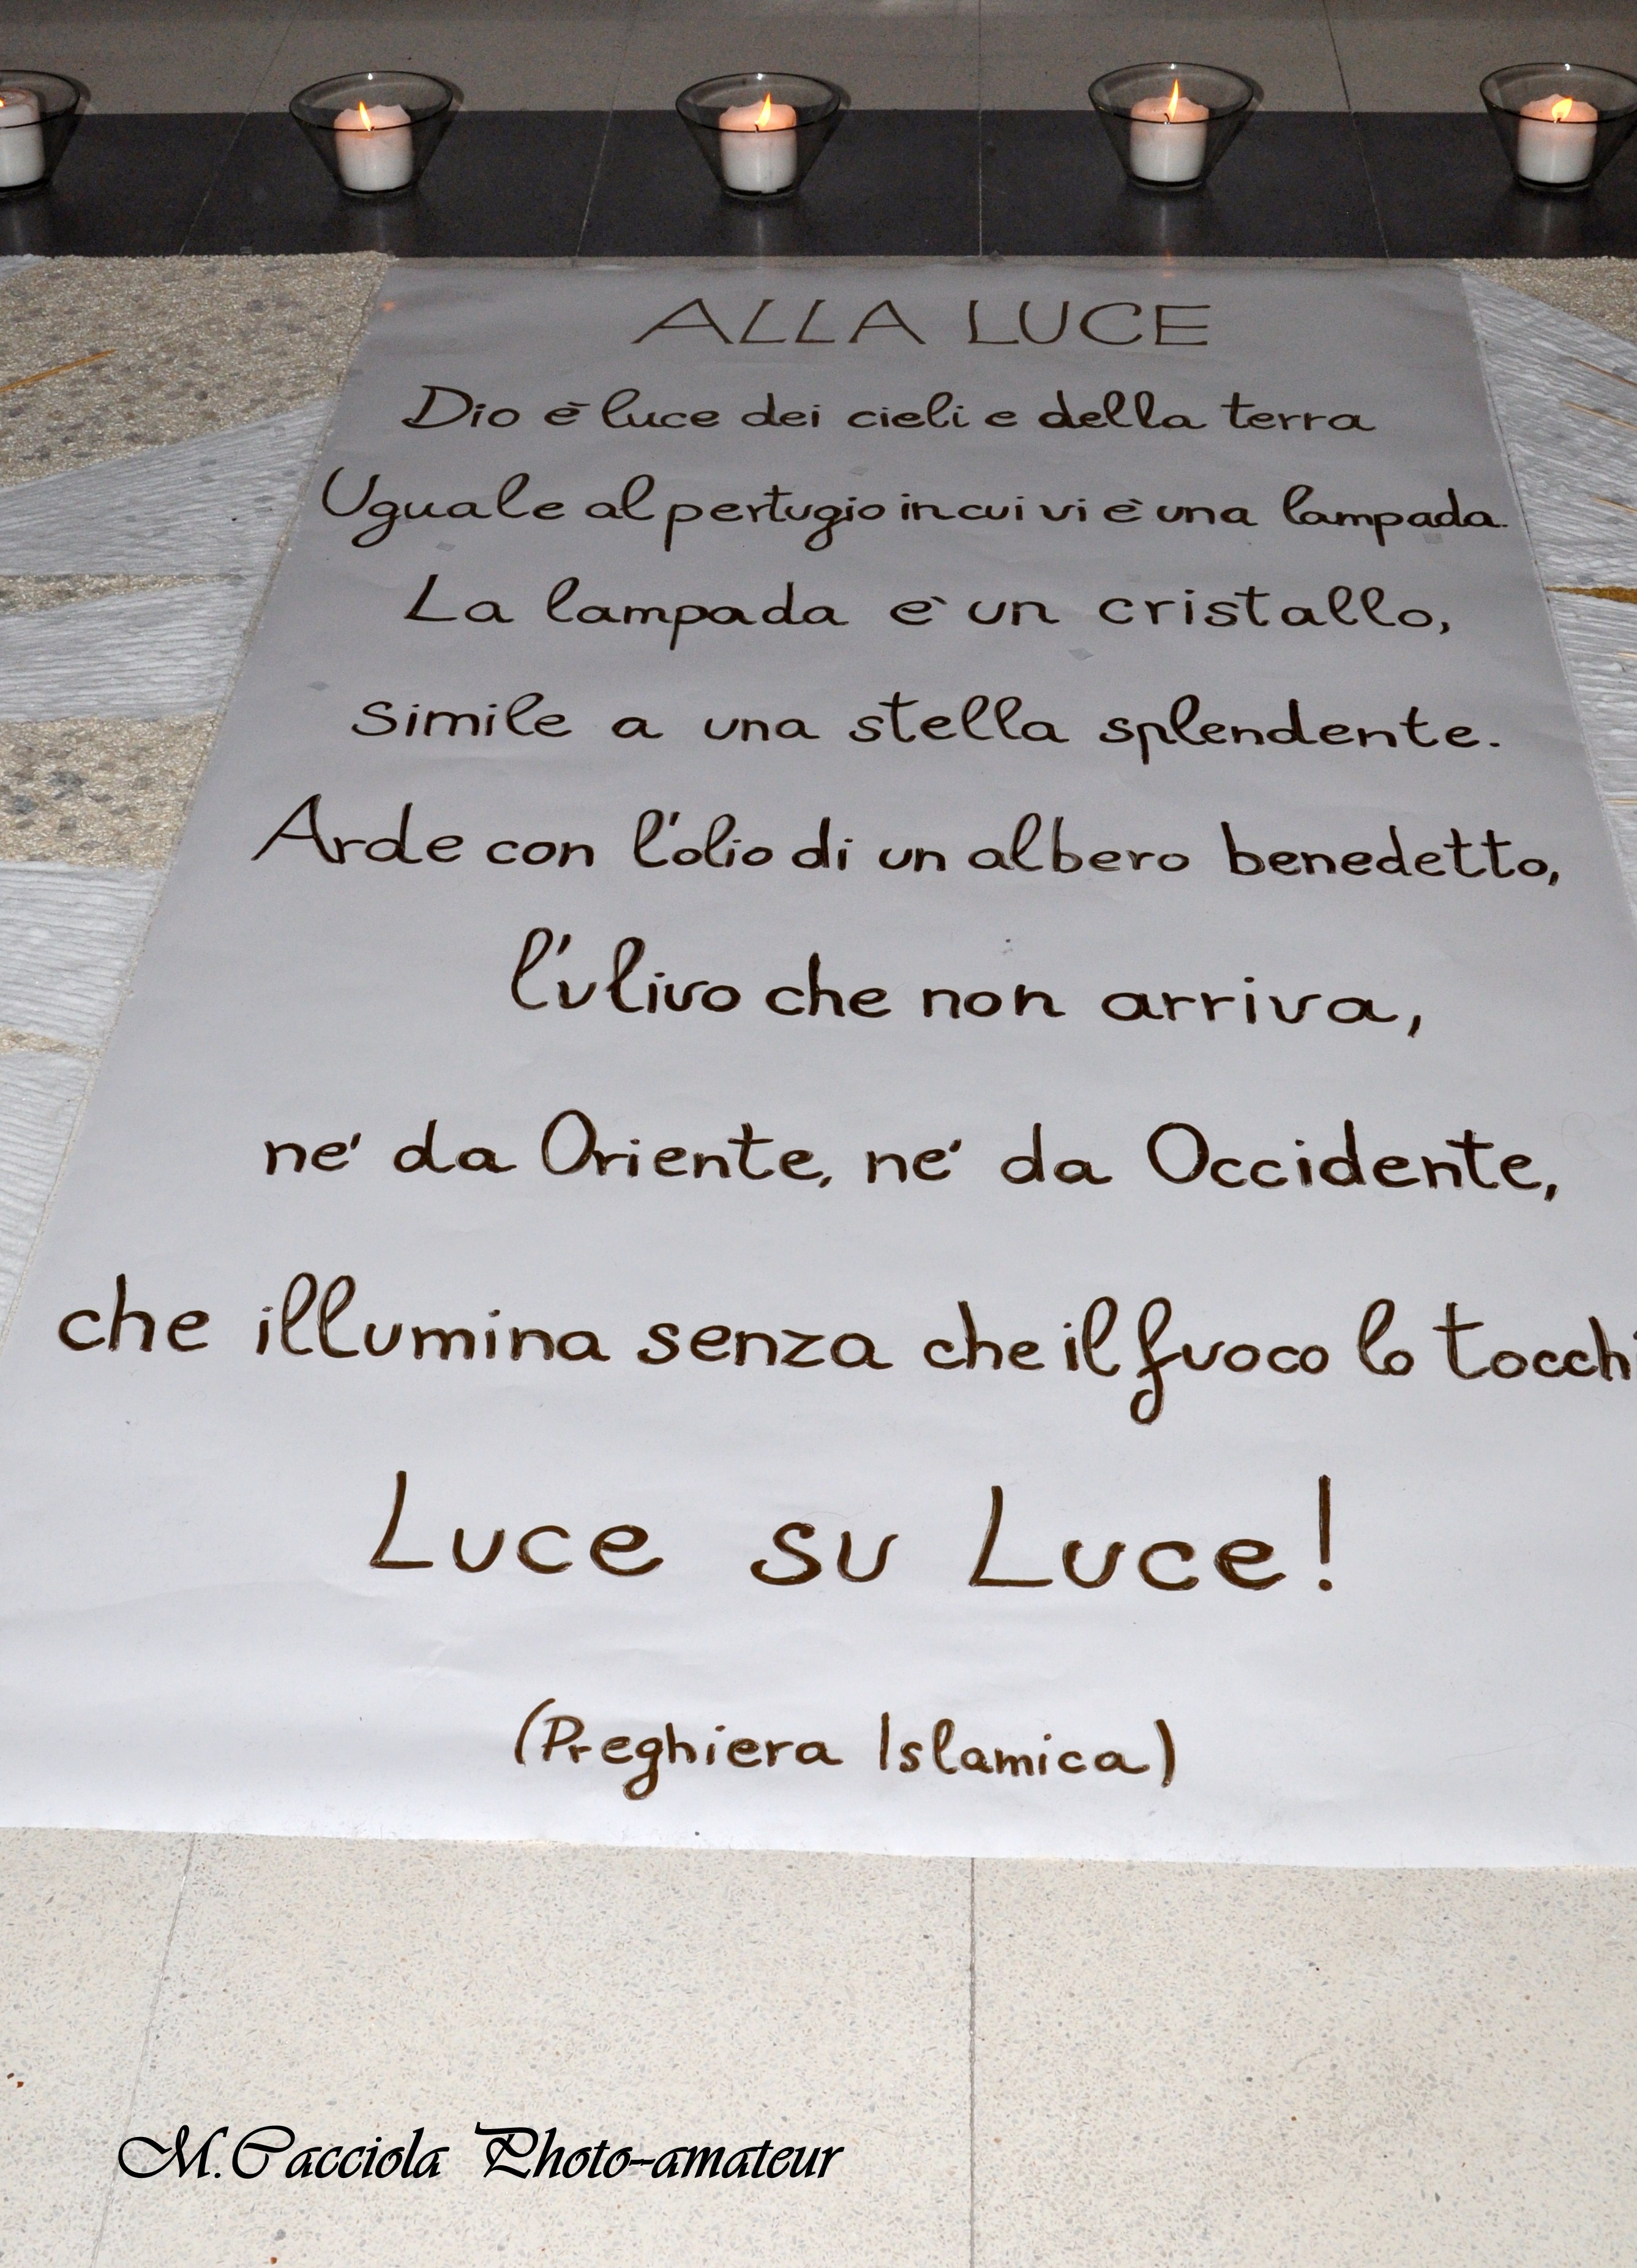 ALLA LUCE
Dio è luce dei cieli e della terra
Uguale al pertugio in cui vi è una lampada.
La lampada è un cristallo,
simile a una stella splendente.
Arde con l'olio di un albero benedetto,
l'ulivo che non arriva,
ne' da Oriente, ne' da Occidente,
che illumina senza che il fuoco lo tocchi
Luce su Luce!
(Preghiera Islamica)
M.Cacciola Photo-amateur